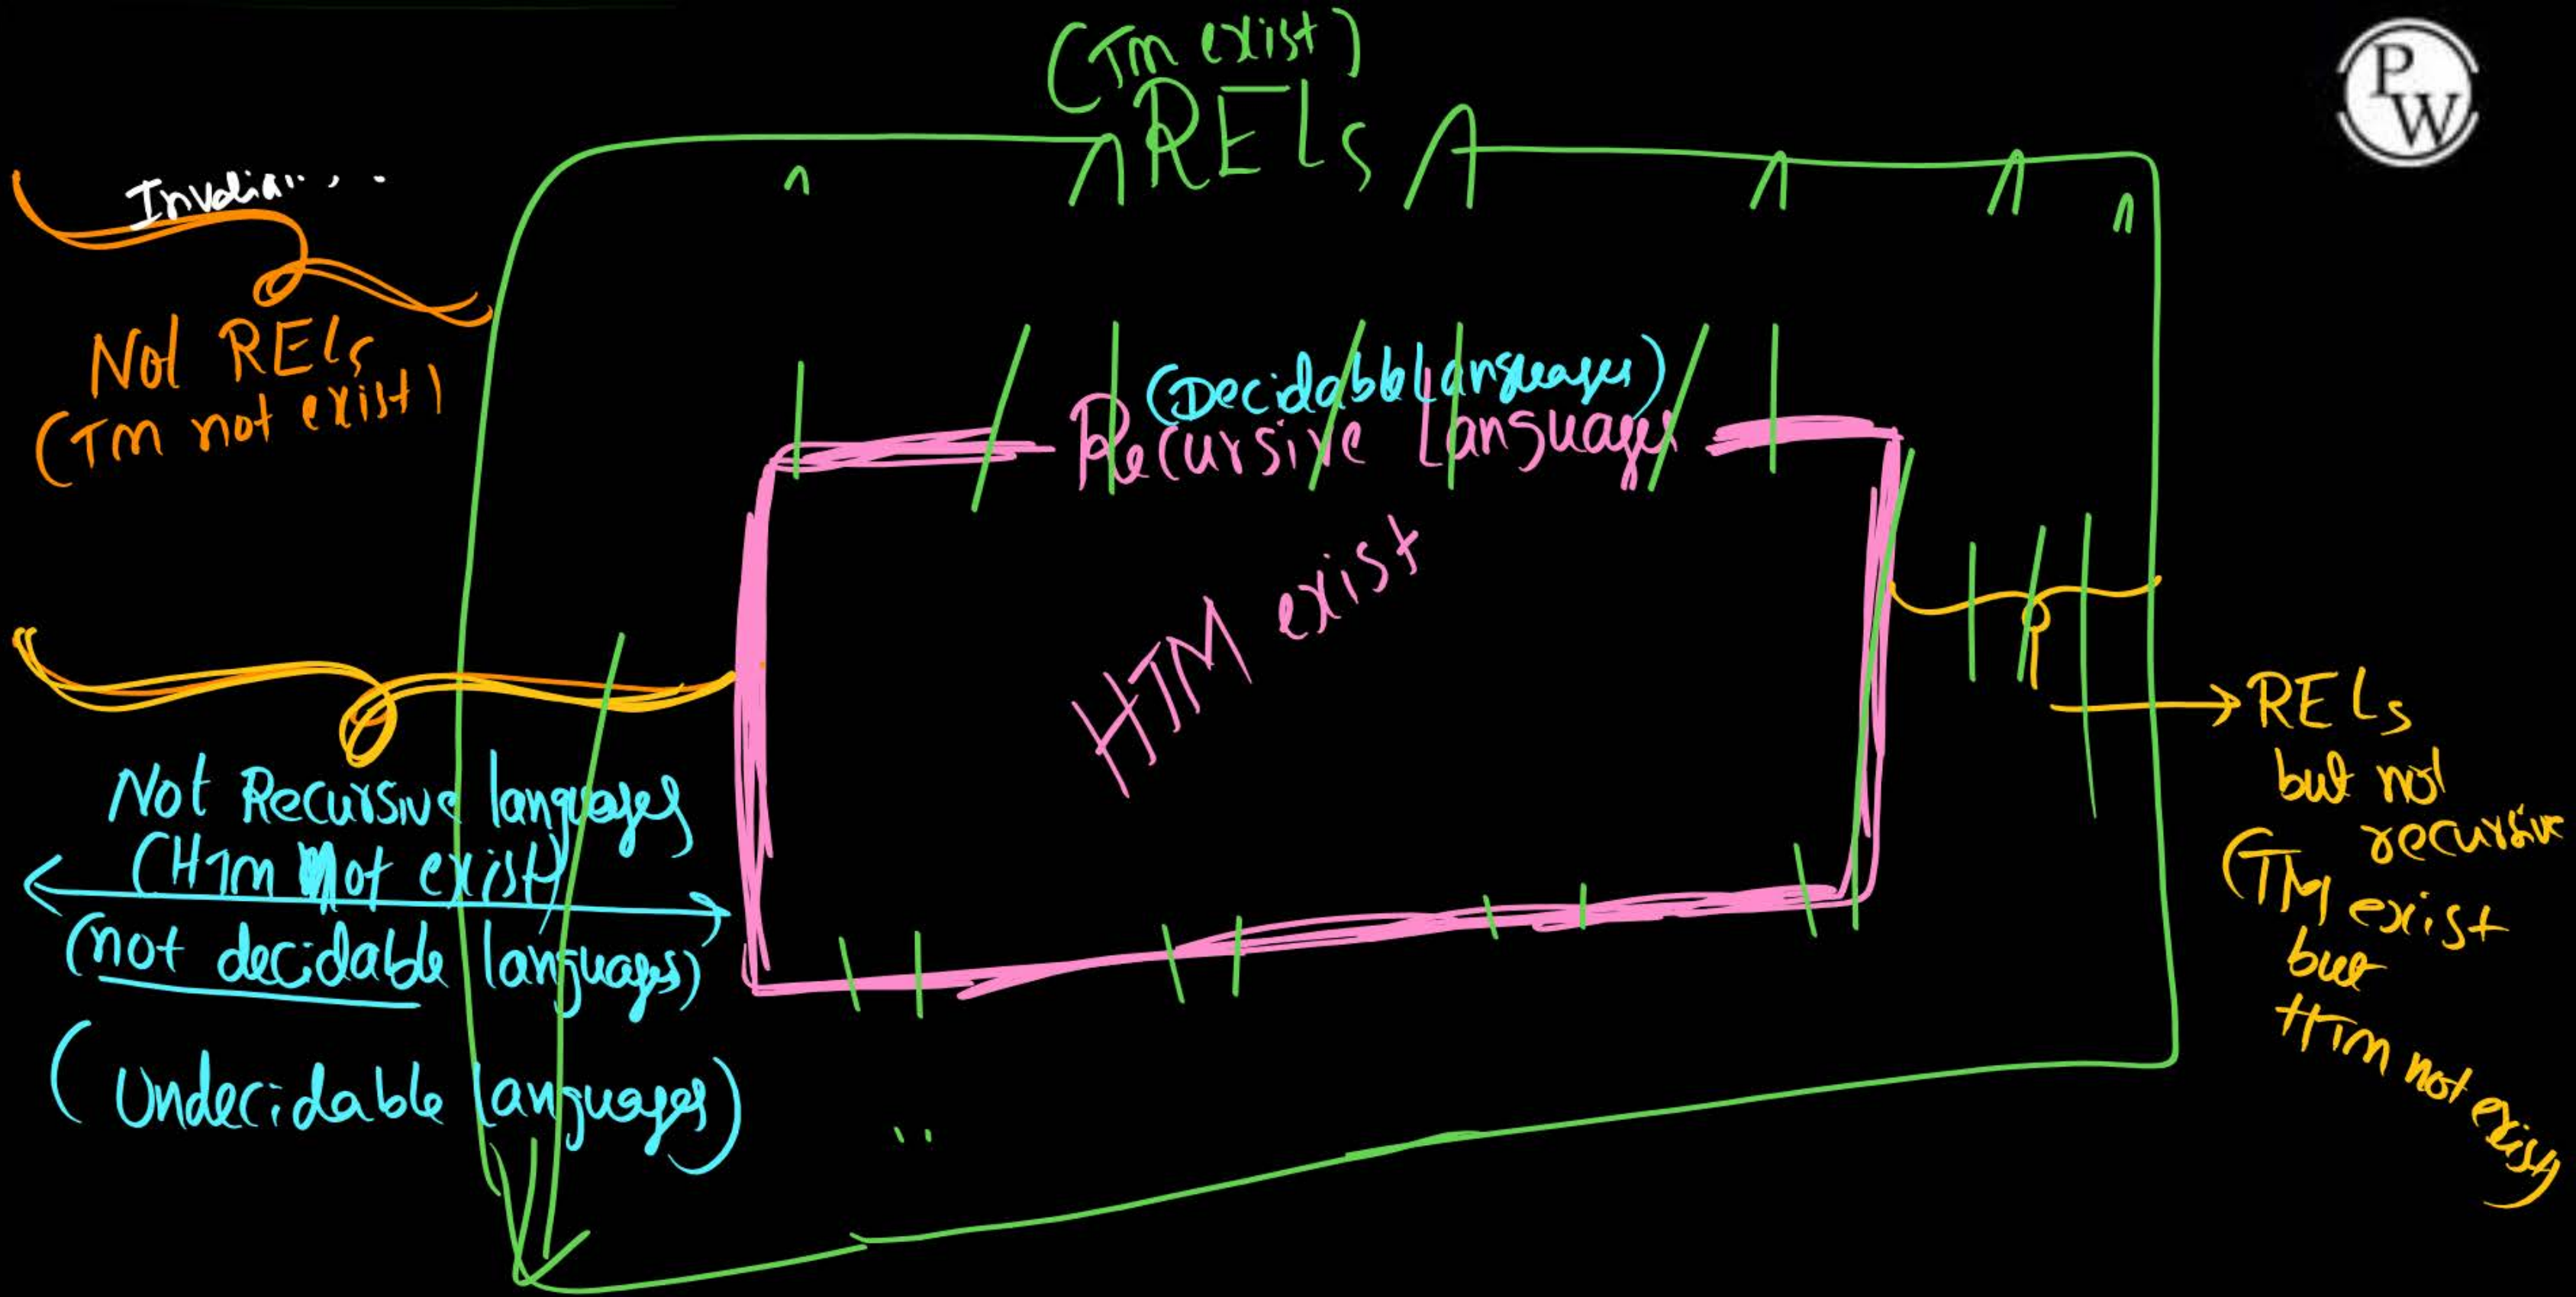 (Tm exist)
RELs
PW
Not RELs
(Tm not exist)
(Decidable Languages)
Recursive Languages
HTM exist
Not Recursive languages
(HTm Not exist)
(not decidable languages)
(Undecidable languages)
RELs
but not
recursive
(TM exist
but
HTm not exist)